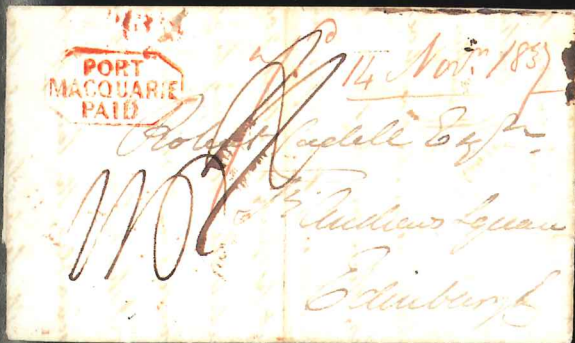 PORT
MACQUARIE
PAID
14 Novr. 1837
Robert Cadell Esqre
St Andrews Square
Edinburgh